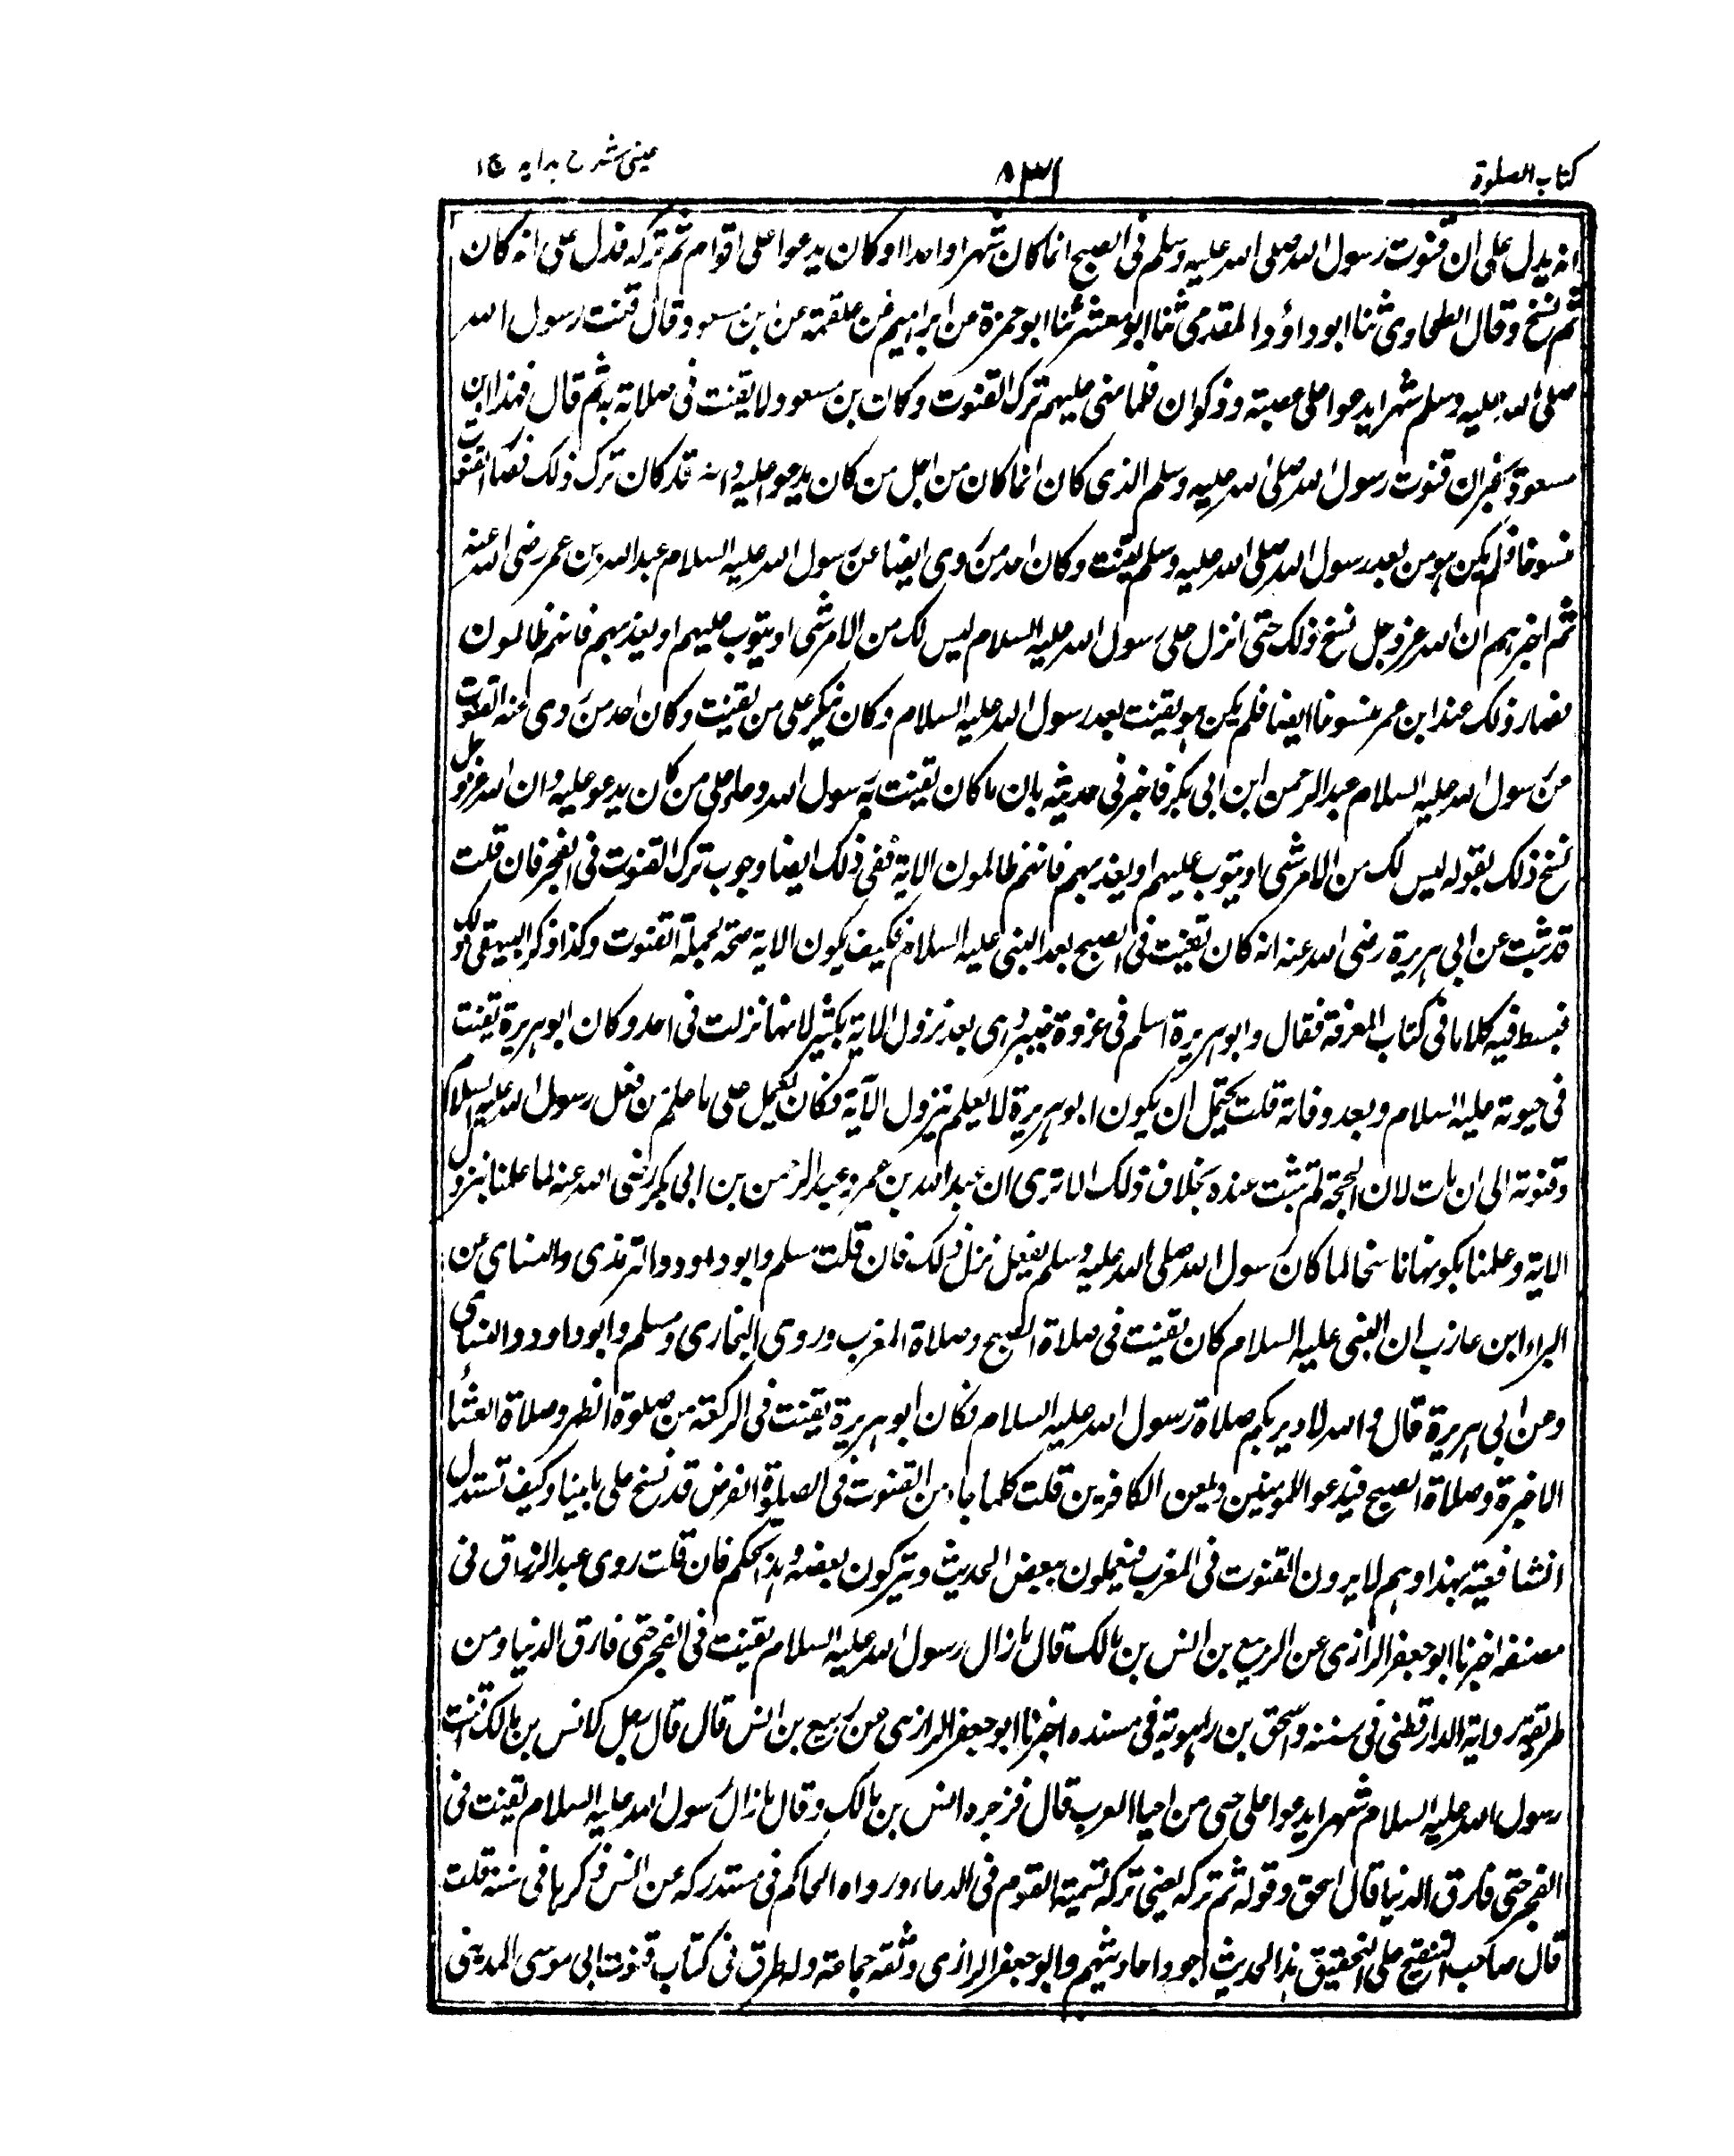 كتاب الصلوة
٨٣١
عينى شرح هدايه ج ١
انه يدل على ان قنوت رسول الله صلى الله عليه وسلم فى الصبح انما كان شهرا واحدا وكان يدعوا على اقوام ثم تركه فدل على انه كان
ثم نسخ وقال الطحاوى ثنا ابو داؤد المقدمى ثنا ابو معشر ثنا ابو حمزة عن ابراهيم عن علقمة عن ابن مسعود قال قنت رسول الله
صلى الله عليه وسلم شهرا يدعوا على عصية وذكوان فلما ظهر عليهم ترك القنوت وكان بن مسعود لا يقنت فى صلاته ثم قال فهذا ابن
مسعود يخبر ان قنوت رسول الله صلى الله عليه وسلم الذى كان انما كان من اجل من كان يدعو عليه وانه قد كان ترك ذلك فصار القنوت
منسوخا فلم يكن هو من بعد رسول الله صلى الله عليه وسلم يقنت وكان احد من روى ايضا عن رسول الله عليه السلام عبد الله بن عمر رضى الله عنه
ثم اخبرهم ان الله عز وجل نسخ ذلك حتى انزل على رسول الله عليه السلام ليس لك من الامر شى او يتوب عليهم او يعذبهم فانهم ظالمون
فصار ذلك عند ابن عمر منسوخا ايضا فلم يكن هو يقنت بعد رسول الله عليه السلام وكان ينكر على من يقنت وكان احد من روى عنه القنوت
عن رسول الله عليه السلام عبد الرحمن ابن ابى بكر فاخبر فى حديثه بان ما كان يقنت به رسول الله دعاء على من كان يدعو عليه وان الله عز وجل
نسخ ذلك بقوله ليس لك من الامر شى او يتوب عليهم او يعذبهم فانهم ظالمون الاية ففى ذلك ايضا وجوب ترك القنوت فى الفجر فان قلت
قد ثبت عن ابى هريرة رضى الله عنه انه كان يقنت فى الصبح بعد النبى عليه السلام فكيف يكون الاية صحة لجملة القنوت وكذا ذكر البيهقى ذلك
فبسط فيه كلاما فى كتاب المعرفة فقال وابو هريرة اسلم فى غزوة خيبر وهى بعد نزول الاية بكثير لانها نزلت فى احد وكان ابو هريرة يقنت
فى حيوته عليه السلام وبعد وفاته قلت يحتمل ان يكون ابو هريرة لا يعلم بنزول الآية فكان يعمل على ما علم من فعل رسول الله عليه السلام
وقنوته الى ان مات لان الحجة لم تثبت عنده بخلاف ذلك الا ترى ان عبد الله بن عمر وعبد الرحمن بن ابى بكر رضى الله عنه لما علمنا بنزول
الاية وعلمنا بكونها ناسخا لما كان رسول الله صلى الله عليه وسلم يفعل نزل ذلك فان قلت مسلم وابو داود والترمذى والنساى عن
البراء ابن عازب ان النبى عليه السلام كان يقنت فى صلاة الصبح وصلاة المغرب وروى البخارى ومسلم وابو داود والنساى
وعن ابى هريرة قال والله لا ديريكم صلاة رسول الله عليه السلام فكان ابو هريرة يقنت فى الركعة من صلوة الظهر وصلاة العشا
الاخيرة وصلاة الصبح فيدعو اللمومنين ويلعن الكافرين قلت كلما جاء من القنوت فى الصلوة الفرض قد نسخ على ما بينا وكيف تستدل
الشافعية بهذا وهم لا يرون القنوت فى المغرب فيعملون ببعض الحديث ويتركون بعضه وهذا تحكم فان قلت روى عبد الرزاق فى
مصنفه اخبرنا ابو جعفر الرازى عن الربيع بن انس بن مالك قال ما زال رسول الله عليه السلام يقنت فى الفجر حتى فارق الدنيا ومن
طريقه رواية الدارقطنى فى سننه واسحق بن راهويه فى مسنده اخبرنا ابو جعفر الرازى عن ربيع بن انس قال قال رجل لانس بن مالك اقنت
رسول الله عليه السلام شهرا يدعوا على حى من احيا العرب قال فزجره انس بن مالك وقال ما زال رسول الله عليه السلام يقنت فى
الفجر حتى فارق الدنيا قال اسحق وقوله ثم تركه يعنى تركه تسمية القوم فى الدعاء ورواه الحاكم فى مستدركه عن انس ذكرها فى سننه قلت
قال صاحب التنقيح على التحقيق هذا الحديث اجود احاديثهم وابو جعفر الرازى وثقه جماعة وله طرق فى كتاب قنوت ابى موسى المدينى